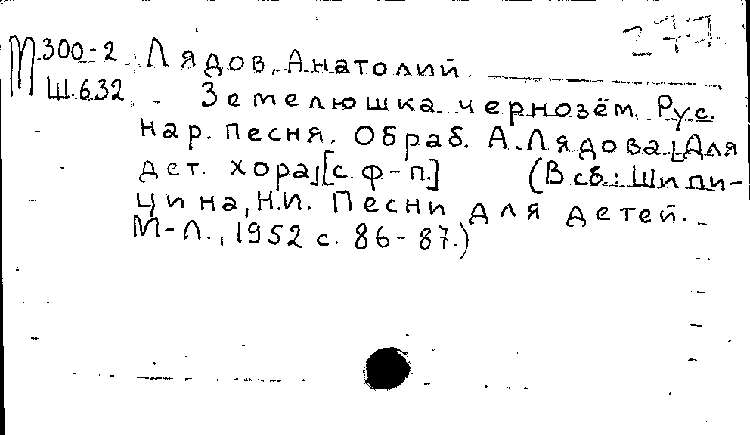 277
М 300-2 Лядов, Анатолий
Ш.632 Земелюшка чернозём. Рус.
нар. песня. Обраб. А. Лядова [Для
дет. хора] [с. ф-п.] (В сб.: Шипи-
цина, Н.И. Песни для детей.
М-Л., 1952 с. 86-87.)